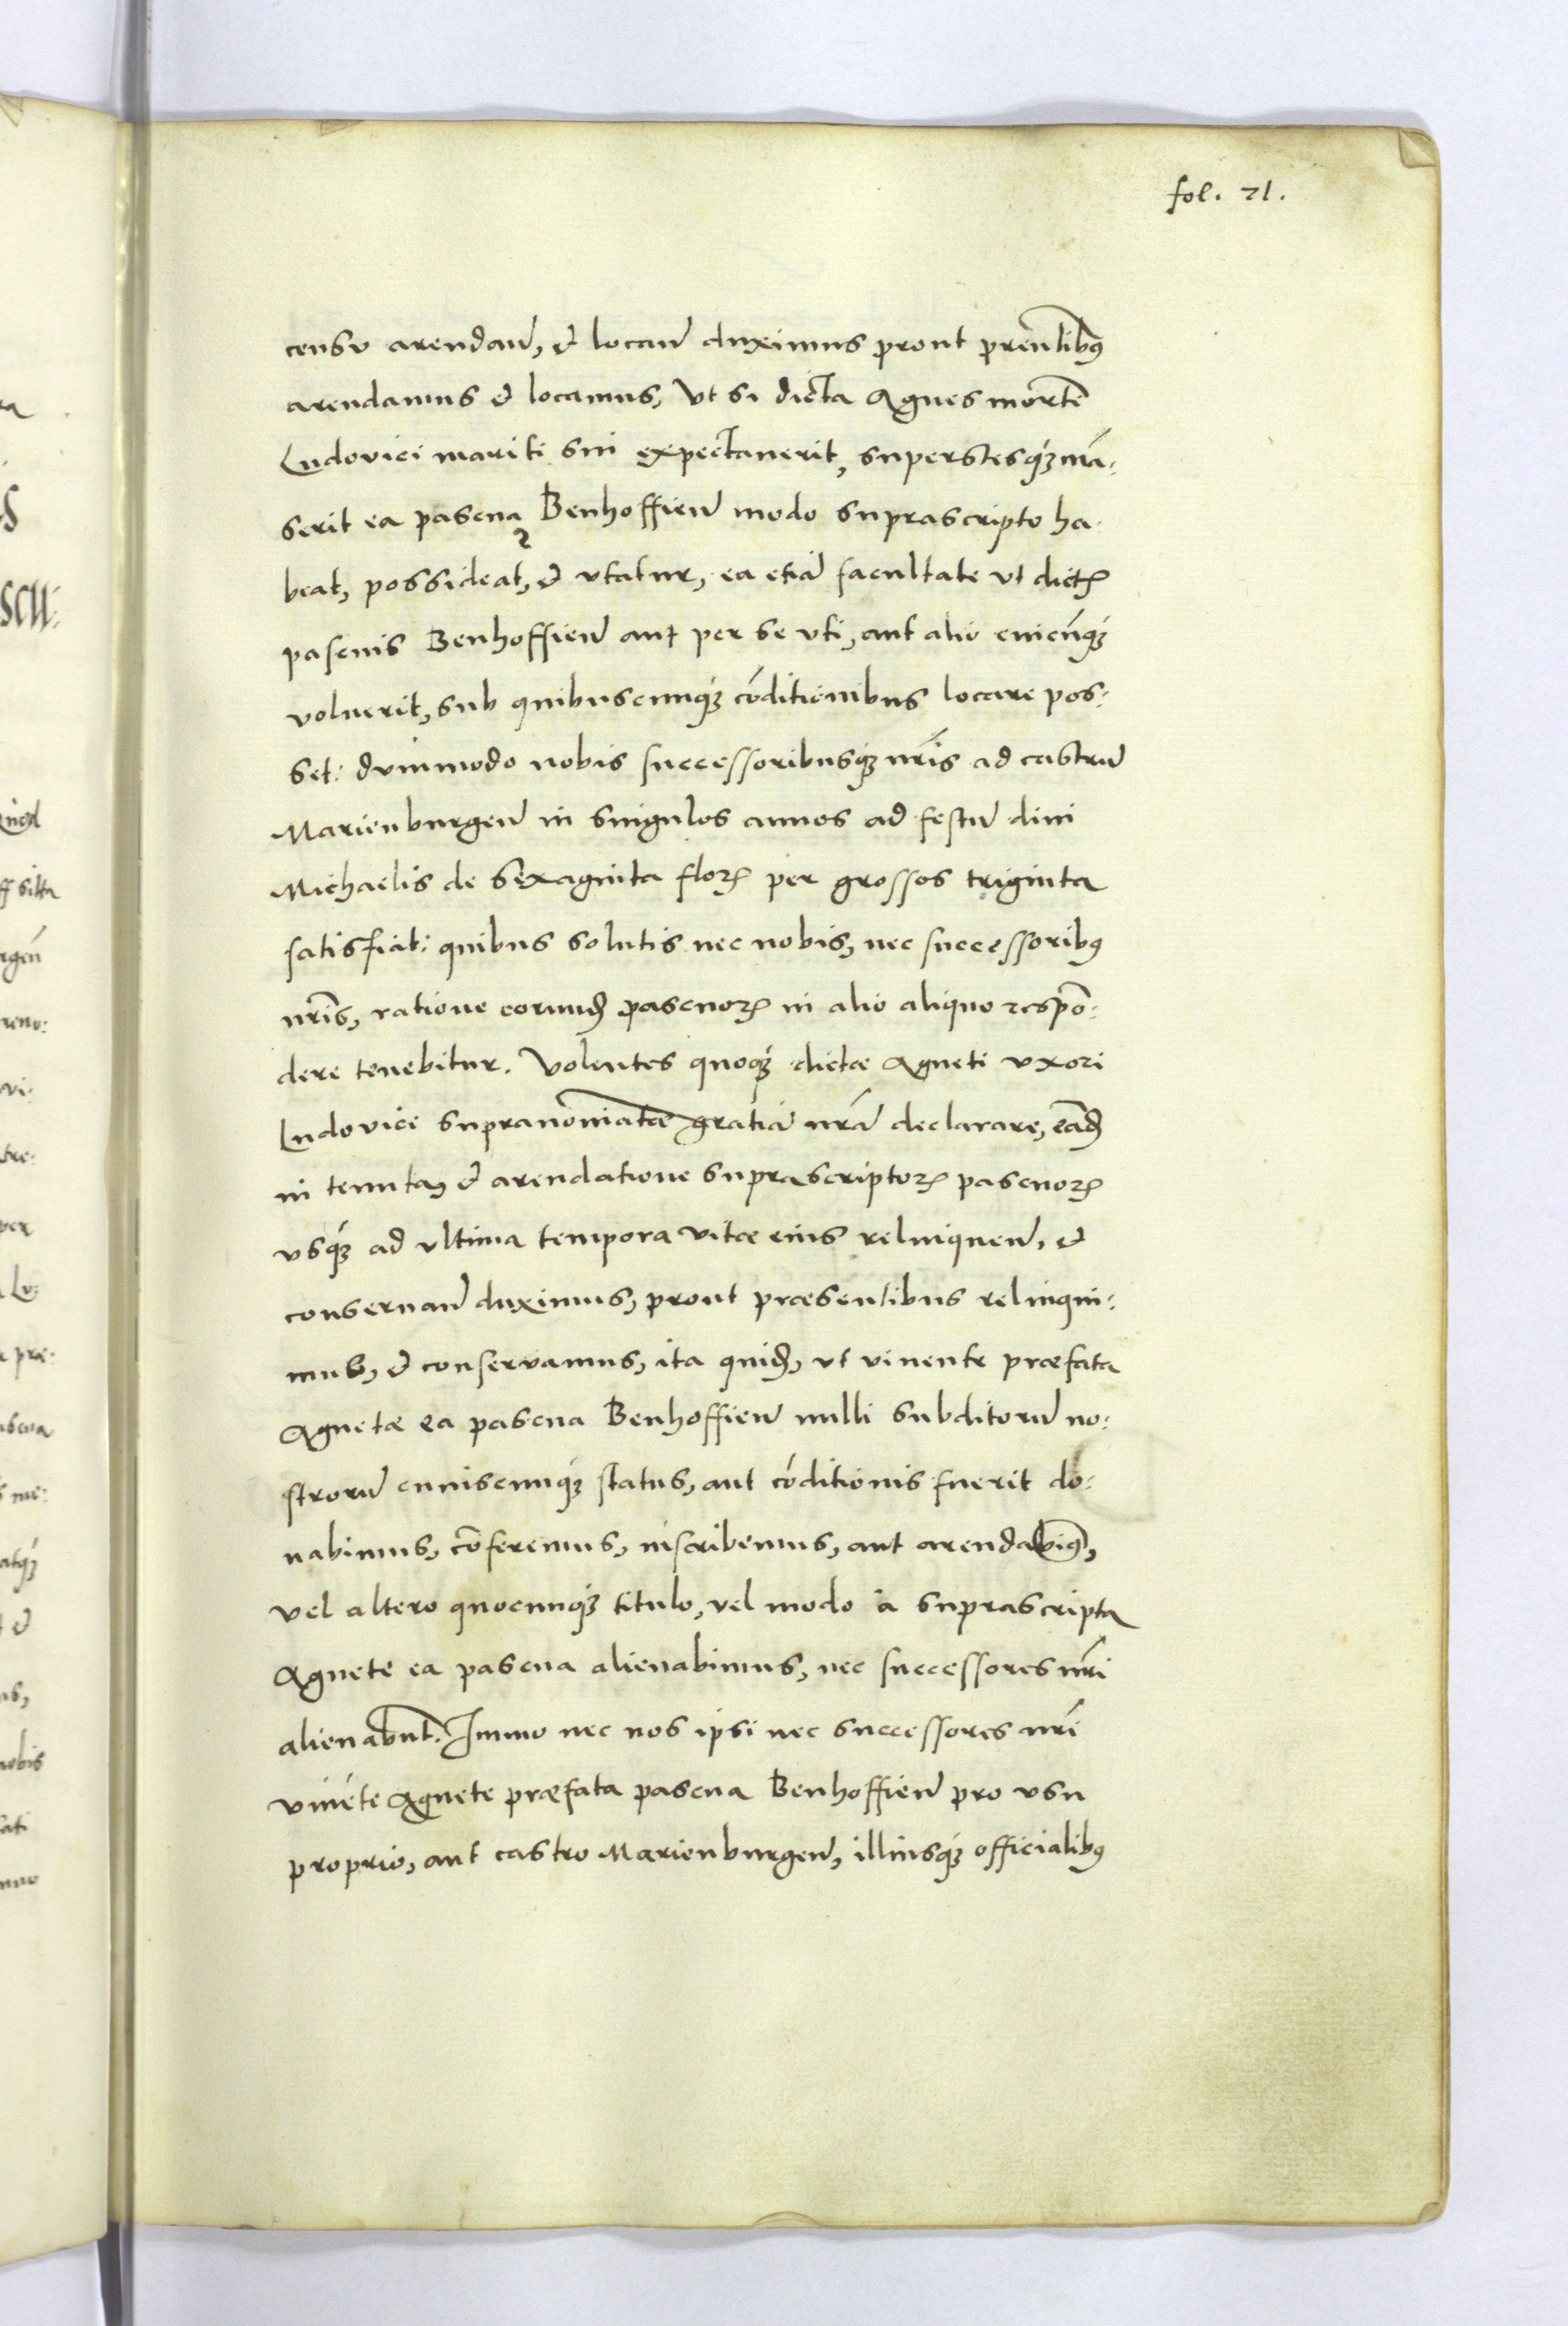 fol. 21.
censu arendan̄, & locan̄ duximus prout prēntibꝰ
arendamus & locamus, Vt si dicta Agnes mortē
Ludovici mariti sui expectauerit, superstesqꝫ mā-
serit ea pascua Benhoffien̄ modo suprascripto ha-
beat, possideat, & vtatur, ea etiā facultate vt dictꝭ
pascuis Benhoffien̄ aut per se vti, aut alio cuicūqꝫ
voluerit, sub quibuscumqꝫ cōditionibus locare pos-
set: dummodo nobis successoribusqꝫ nr̄is ad castrū
Marienburgen̄ in singulos annos ad festū diui
Michaelis de sexaginta florꝭ per grossos triginta
satisfiat: quibus solutis nec nobis, nec successoribꝰ
nr̄is, ratione eorumd̄ pascuorꝝ in alio aliquo respō-
dere tenebitur. Volentes quoqꝫ dictæ Agneti vxori
Ludovici supranominatæ gratiā nr̄ā declarare, eād̄
in tenuta, & arendatione suprascriptorꝝ pascuorꝝ
vsqꝫ ad vltima tempora vitæ eius relinquen̄, &
conseruan̄ duximus, prout præsentibus relinqui-
mus, & conservamus, ita quid̄, vt viuente præfata
Agnetæ ea pascua Benhoffien̄ nulli subditorū no-
strorū cuiuscumqꝫ status, aut cōditionis fuerit do-
nabimus, cōferemus, inscribemus, aut arendabimꝰ,
vel altero quocumqꝫ titulo, vel modo a suprascripta
Agnete ea pascua alienabimus, nec successores nr̄i
alienabūt. Immo nec nos ipsi nec successores nr̄i
viuēte Agnete præfata pascua Benhoffien̄ pro vsu
proprio, aut castro Marienburgen̄, illiusqꝫ officialibꝰ